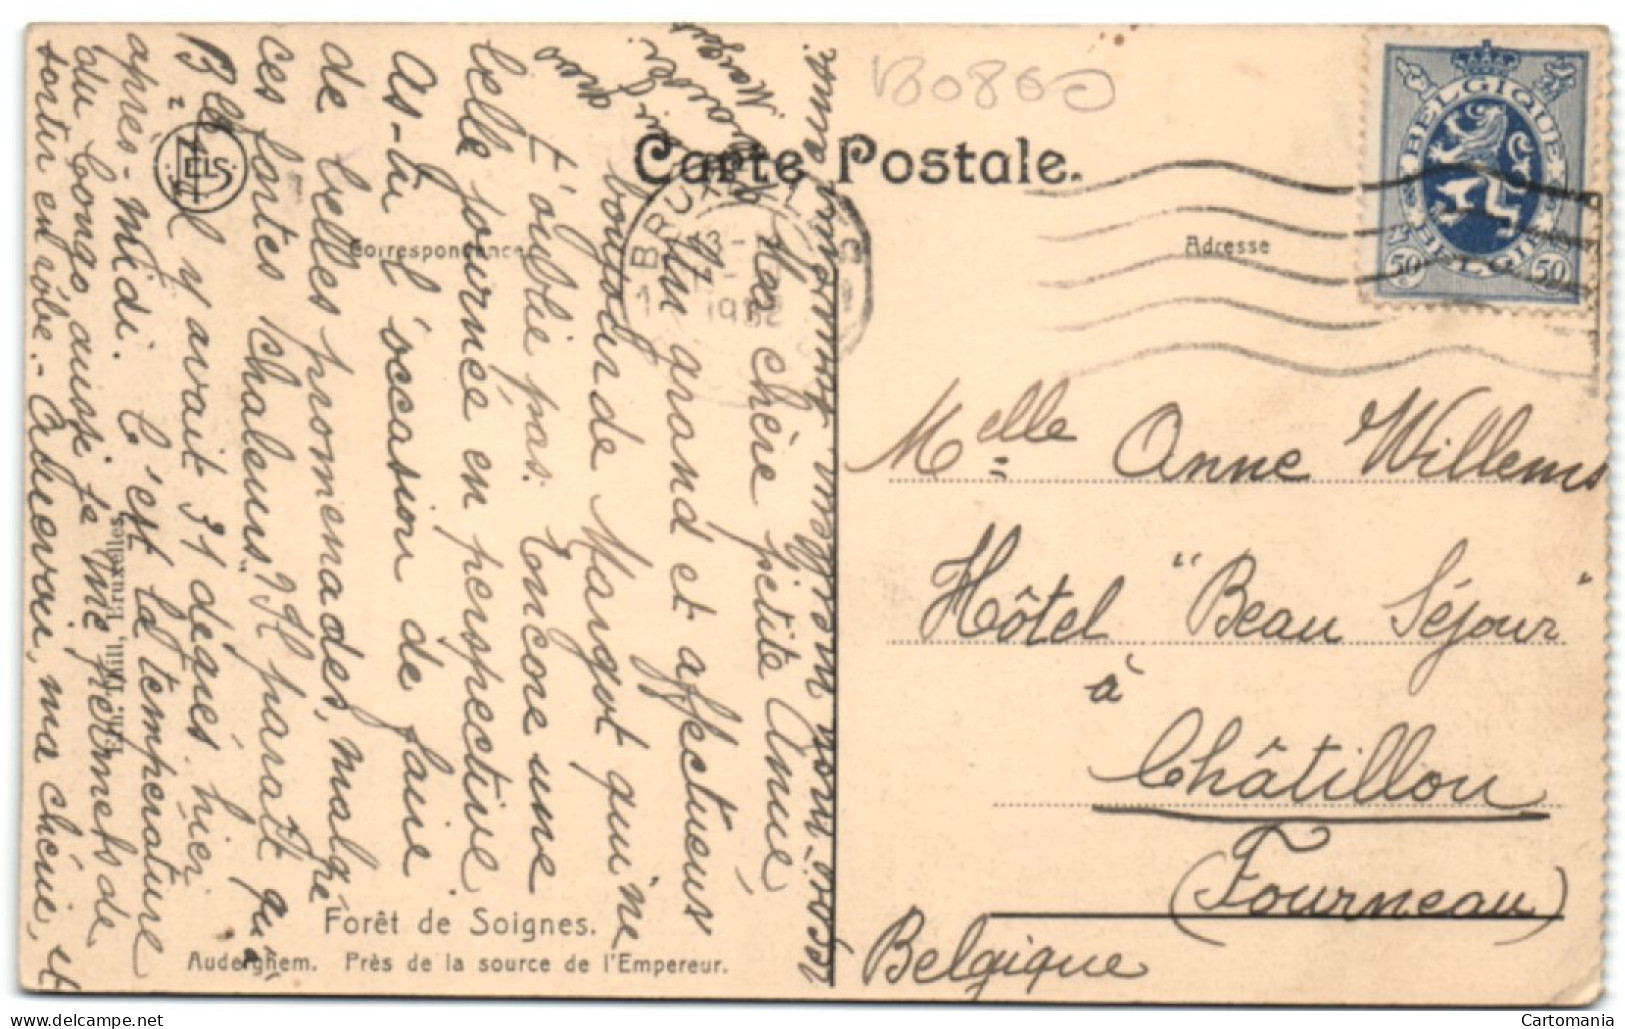 180860
Carte Postale.
Correspondance
Adresse
BELGIQUE
BELGIË
50 50
BRUXELLES
13-
1932
ELS
Melle Anne Willems
Hôtel "Beau Séjour"
à
Châtillon
(Fourneau)
Belgique
Ma chère petite Amie
Un grand et affectueux
bonjour de Margot qui ne
t'oublie pas. Encore une
belle journée en perspective
As-tu l'occasion de faire
de belles promenades, malgré
ces fortes chaleurs? Il parait qu'à
Bxl il y avait 31 degrés hier
après-midi. C'est la température
du Congo, aussi je me permets de
sortir en robe.- Au revoir, ma chérie, et
reçois mon meilleur souvenir
Margot
Forêt de Soignes.
Auderghem. Près de la source de l'Empereur.
Lith. Thill, Bruxelles
Cartomania